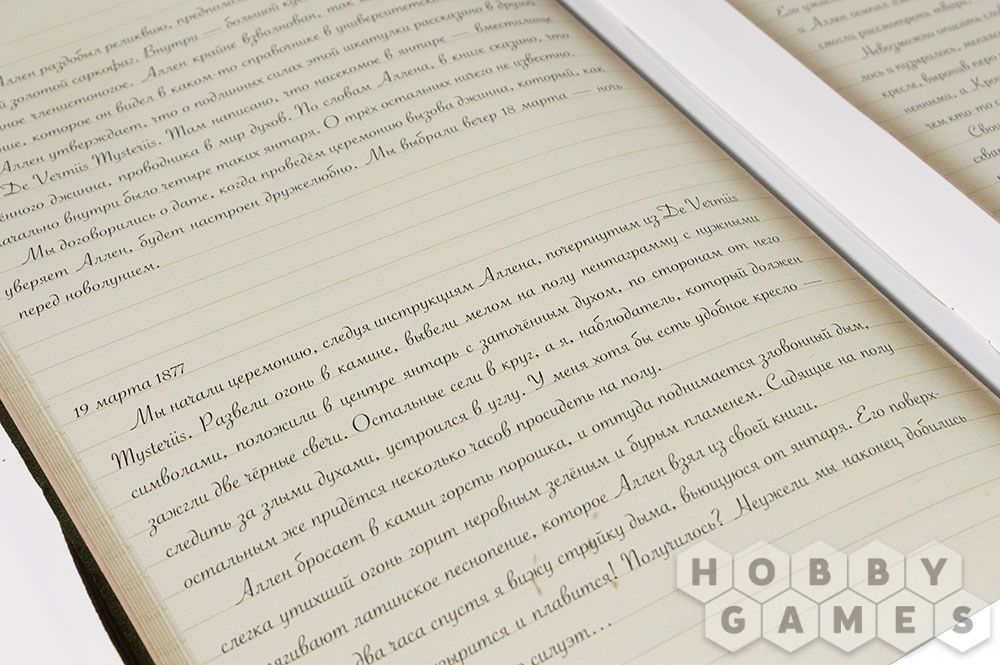 Аллен раздобыл реликвию, предполо
й золотой саркофаг. Внутри — большой ку
ное членистоногое. Аллен крайне взволнован, так
ние, которое он видел в каком-то справочнике в университетской
Аллен утверждает, что о подлинных силах этой шкатулки рассказано в другой
De Vermiis Mysteriis. Там написано, что насекомое в янтаре — вместилище
ённого джинна, проводника в мир духов. По словам Аллена, в книге сказано, что
начально внутри было четыре таких янтаря. О трёх остальных ничего не известно.
Мы договорились о дате, когда проведём церемонию вызова джинна, который, как
уверяет Аллен, будет настроен дружелюбно. Мы выбрали вечер 18 марта — ночь
перед новолунием.
19 марта 1877
Мы начали церемонию, следуя инструкциям Аллена, почерпнутым из De Vermiis
Mysteriis. Развели огонь в камине, вывели мелом на полу пентаграмму с нужными
символами, положили в центре янтарь с заточённым духом, по сторонам от него
зажгли две чёрные свечи. Остальные сели в круг, а я, наблюдатель, который должен
следить за злыми духами, устроился в углу. У меня хотя бы есть удобное кресло —
остальным же придётся несколько часов просидеть на полу.
Аллен бросает в камин горсть порошка, и оттуда поднимается зловонный дым,
слегка утихший огонь горит неровным зелёным и бурым пламенем. Сидящие на полу
ягивают латинское песнопение, которое Аллен взял из своей книги.
два часа спустя я вижу струйку дыма, вьющуюся от янтаря. Его поверх-
зырится и плавится! Получилось? Неужели мы наконец добились
о силуэт...
Его ужа
и Аллен остал
смогли рассмотреть тварь.
Невозможно описать сло
лось и пузырилось, меняло
кресле, выронив перо
ненными, а Кро
чем кто-то
Сво
схва
HOBBY
GAMES